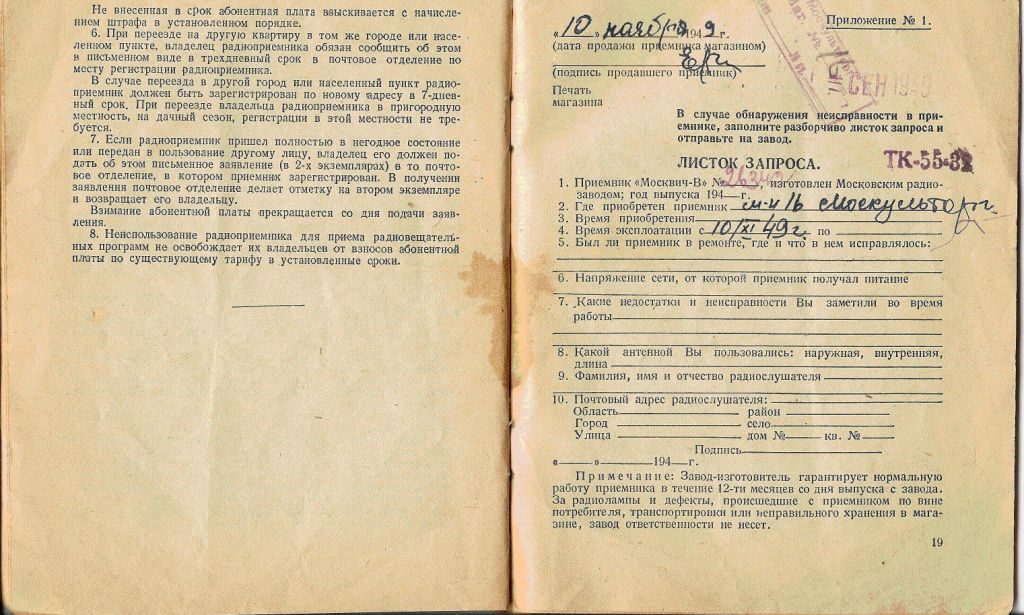 Не внесенная в срок абонентная плата взыскивается с начисле-
нием штрафа в установленном порядке.
6. При переезде на другую квартиру в том же городе или насе-
ленном пункте, владелец радиоприемника обязан сообщить об этом
в письменном виде в трехдневный срок в почтовое отделение по
месту регистрации радиоприемника.
В случае переезда в другой город или населенный пункт радио-
приемник должен быть зарегистрирован по новому адресу в 7-днев-
ный срок. При переезде владельца радиоприемника в пригородную
местность, на дачный сезон, регистрации в этой местности не тре-
буется.
7. Если радиоприемник пришел полностью в негодное состояние
или передан в пользование другому лицу, владелец его должен по-
дать об этом письменное заявление (в 2-х экземплярах) в то почто-
вое отделение, в котором приемник зарегистрирован. В получении
заявления почтовое отделение делает отметку на втором экземпляре
и возвращает его владельцу.
Взимание абонентной платы прекращается со дня подачи заяв-
ления.
8. Неиспользование радиоприемника для приема радиовещатель-
ных программ не освобождает их владельцев от взносов абонентной
платы по существующему тарифу в установленные сроки.
Приложение № 1.
«10» ноября 1949 г.
(дата продажи приемника магазином)
(подпись продавшего приемник)
Печать
магазина
СЕН 19
В случае обнаружения неисправности в при-
емнике, заполните разборчиво листок запроса и
отправьте на завод.
ЛИСТОК ЗАПРОСА.
ТК-55-32
1. Приемник «Москвич-В» № 26342, изготовлен Московским радио-
заводом; год выпуска 194 г.
2. Где приобретен приемник м-н 16 Москультторг.
3. Время приобретения
4. Время эксплоатации с 10/XI 49 г. по
5. Был ли приемник в ремонте, где и что в нем исправлялось:
6. Напряжение сети, от которой приемник получал питание
7. Какие недостатки и неисправности Вы заметили во время
работы
8. Какой антенной Вы пользовались: наружная, внутренняя,
длина
9. Фамилия, имя и отчество радиослушателя
10. Почтовый адрес радиослушателя:
Область район
Город село
Улица дом № кв. №
Подпись
« » 194 г.
Примечание: Завод-изготовитель гарантирует нормальную
работу приемника в течение 12-ти месяцев со дня выпуска с завода.
За радиолампы и дефекты, происшедшие с приемником по вине
потребителя, транспортировки или неправильного хранения в мага-
зине, завод ответственности не несет.
19